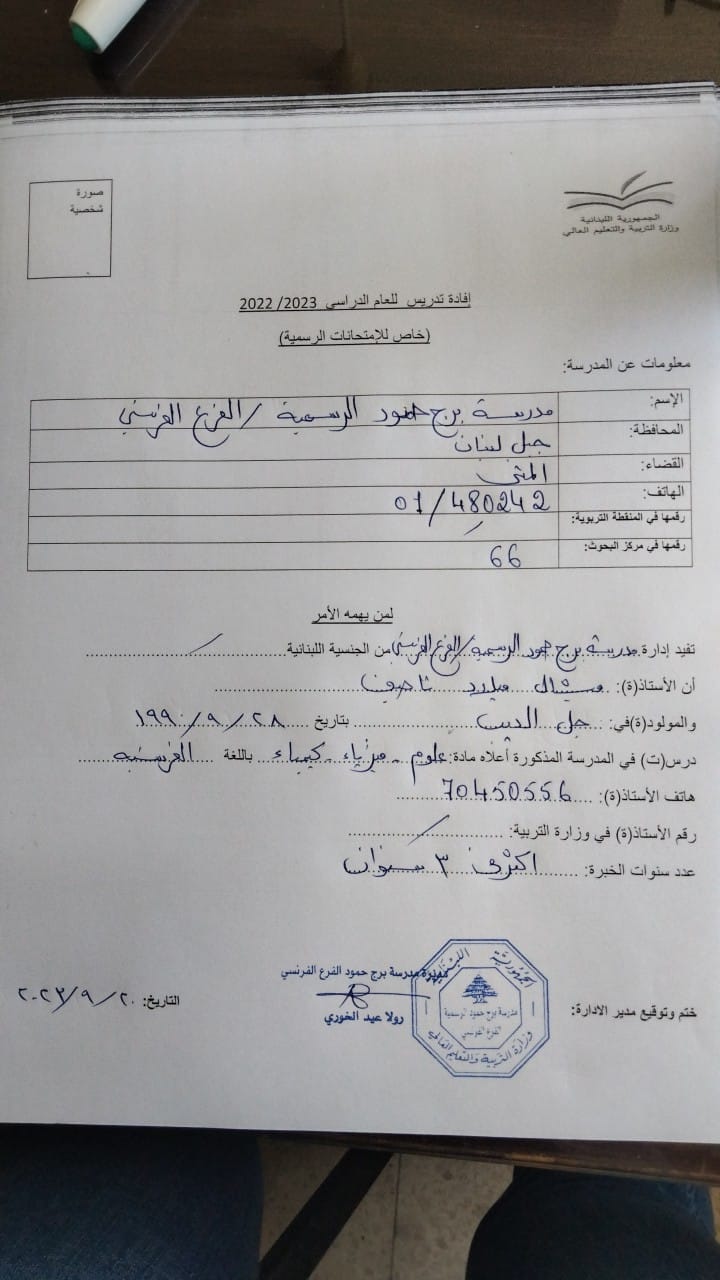 صورة
شخصية
الجمهورية اللبنانية
وزارة التربية والتعليم العالي
إفادة تدريس للعام الدراسي 2023/ 2022
(خاص للإمتحانات الرسمية)
معلومات عن المدرسة:
الإسم: مدرسة برج حمود الرسمية / الفرع الفرنسي
المحافظة: جبل لبنان
القضاء: المتن
الهاتف: 01/480242
رقمها في المنقطة التربوية: /
رقمها في مركز البحوث: 66
لمن يهمه الأمر
تفيد إدارة مدرسة برج حمود الرسمية / الفرع الفرنسي من الجنسية اللبنانية /
أن الأستاذ(ة): ميشال ميلاد
والمولود(ة)في: جل الديب بتاريخ ٢٨ / ٩ / ١٩٩٠
درس(ت) في المدرسة المذكورة أعلاه مادة: علوم - فيزياء - كيمياء باللغة الفرنسية
هاتف الأستاذ(ة): 70450556
رقم الأستاذ(ة) في وزارة التربية: /
عدد سنوات الخبرة: ٣ سنوات
ختم وتوقيع مدير الادارة:
مديرة مدرسة برج حمود الفرع الفرنسي
رولا عيد الخوري
الجمهورية اللبنانية
مدرسة برج حمود الرسمية
الفرع الفرنسي
وزارة التربية والتعليم العالي
التاريخ: ٢٠ / ٩ / ٢٠٢٣